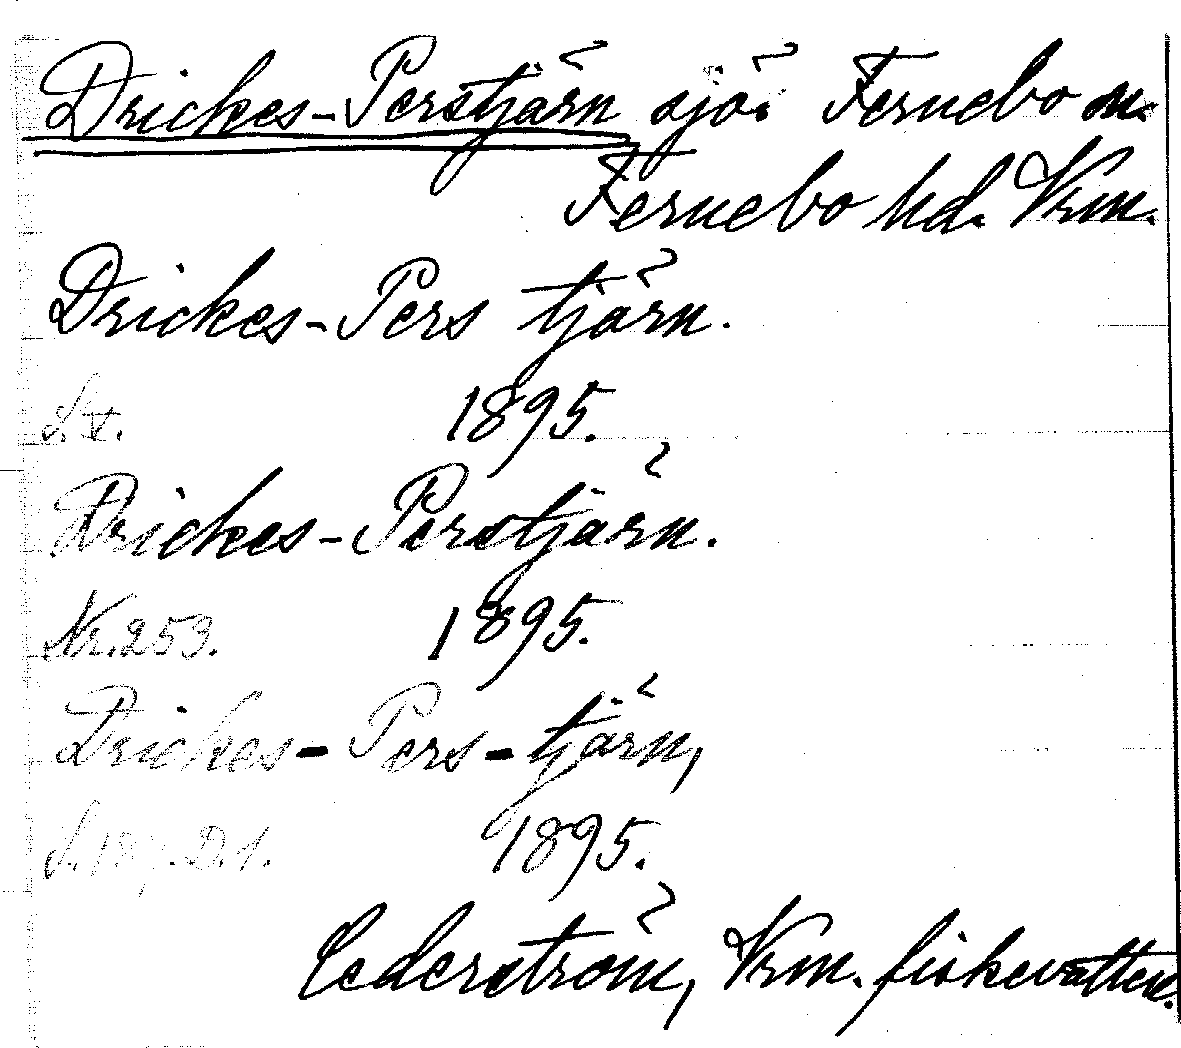 Drickes-Perstjärn sjö. Fernebo sn.
Fernebo hd. Vrm.
Drickes-Pers tjärn.
S. X. 1895.
Drickes-Perstjärn.
Nr. 253. 1895.
Drickes-Pers-tjärn,
D. 1. 1895.
Cederström, Vrm. fiskevatten.